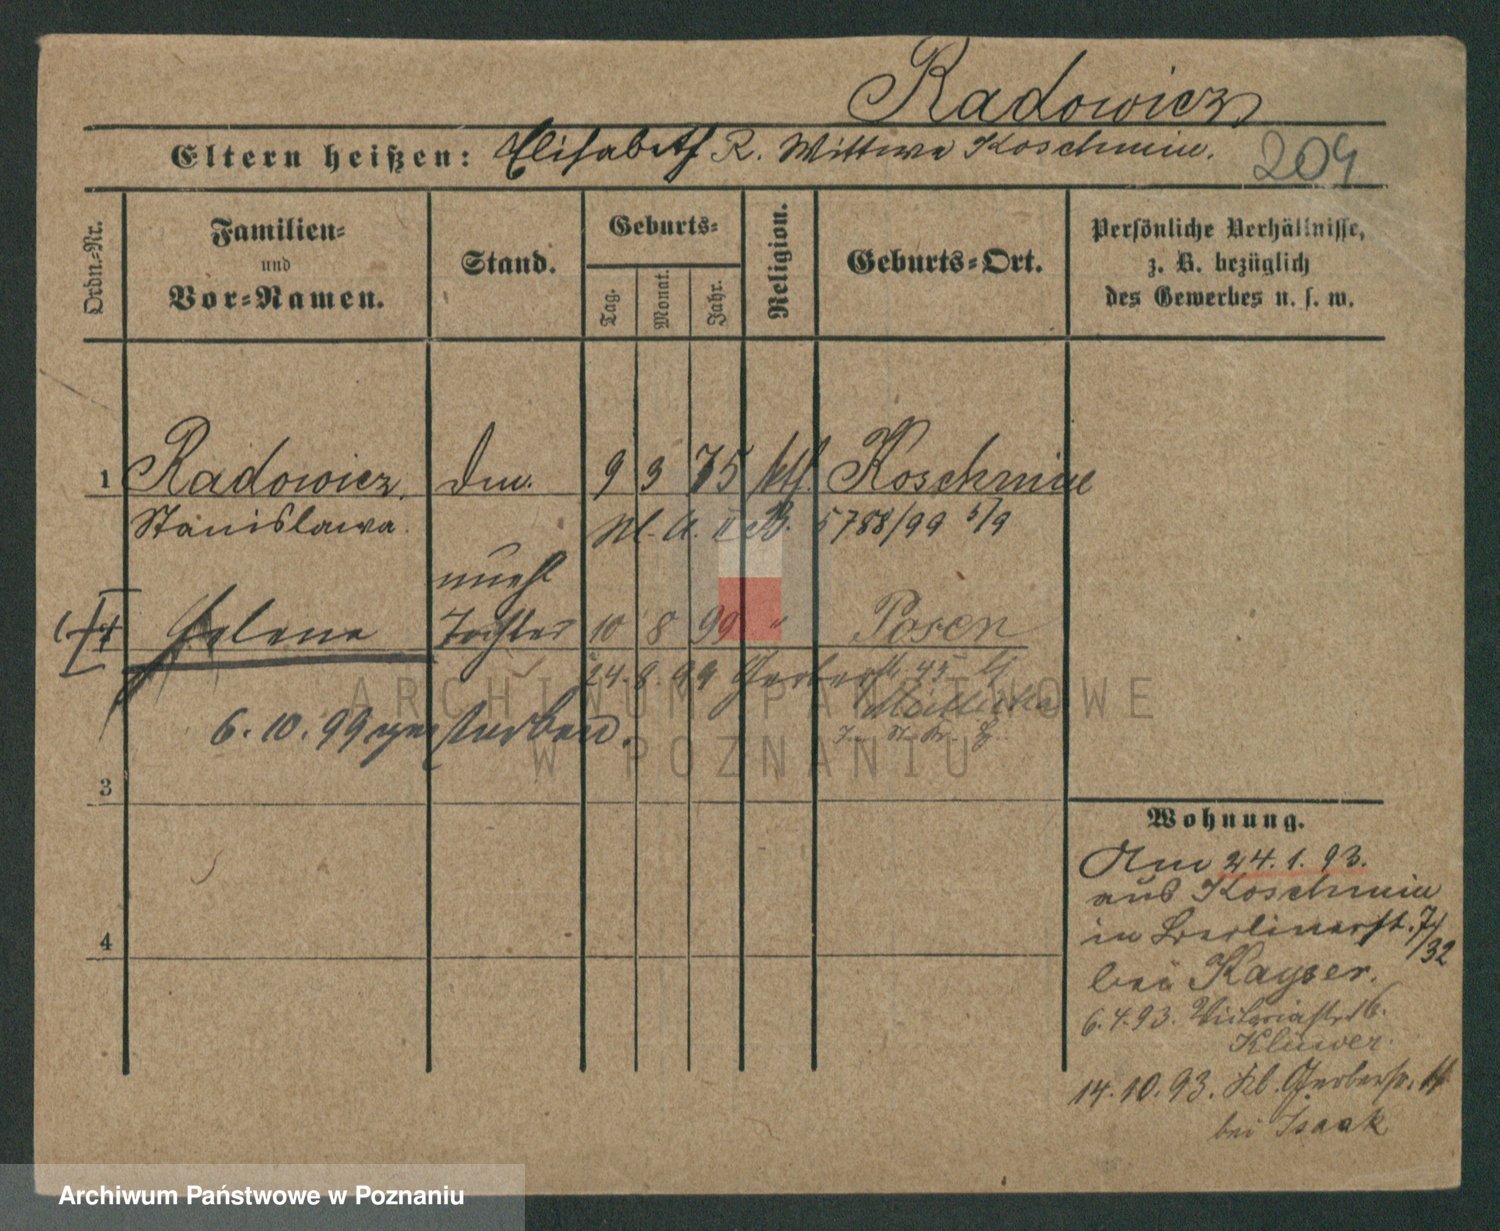 Radowicz
Eltern heißen: Elisabeth R. Wittwe Koschmin.
209
Ordn.-Nr.
Familien-
und
Vor-Namen.
Stand.
Geburts-
Tag.
Monat.
Jahr.
Religion.
Geburts-Ort.
Persönliche Verhältnisse,
z. B. bezüglich
des Gewerbes u. s. w.
1 Radowicz, Dm. 9 3 75 kth. Koschmin
Stanislawa. II B. 5788/99 5/9
unehl
Helena Tochter 10 8 99 " Posen
24. 8. 99 Gerberstr. 45
6. 10. 99 gestorben.
3
4
Wohnung.
Am 24. 1. 93.
aus Koschmin
in Berlinerst. 7/
/32
bei Kayser.
6. 4. 93. Victoriastr. 16.
Klüwer.
14. 10. 93. Kl. Gerberstr. 11
bei Isaak
ARCHIWUM PAŃSTWOWE
W POZNANIU
Archiwum Państwowe w Poznaniu